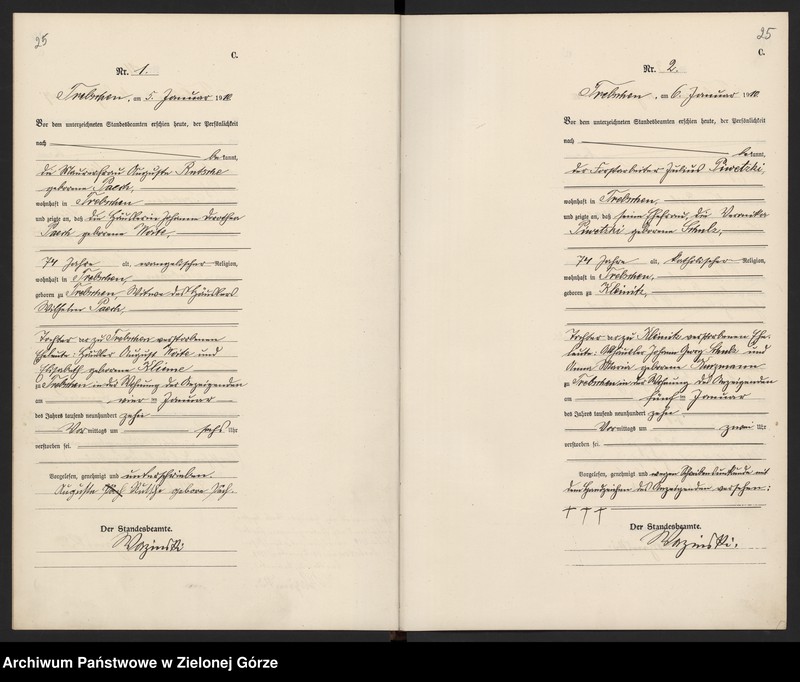 25
C.
Nr. 1.
Trebschen, am 5. Januar 1910.
Vor dem unterzeichneten Standesbeamten erschien heute, der Persönlichkeit
nach
bekannt,
die Maurersfrau Auguste Rutsche
geborene Paech,
wohnhaft in Trebschen
und zeigte an, daß die Häuslerin Johanne Dorothea
Paech geborene Noite,
74 Jahre alt, evangelischer Religion,
wohnhaft in Trebschen,
geboren zu Trebschen, Witwe des Häuslers
Wilhelm Paech,
Tochter der zu Trebschen verstorbenen
Eheleute: Häusler August Noite und
Elisabeth geborene Klieme
zu Trebschen in der Wohnung der Anzeigenden
am vier ten Januar
des Jahres tausend neunhundert zehn
Vormittags um sechs Uhr
verstorben sei.
Vorgelesen, genehmigt und unterschrieben
Auguste geborene
Der Standesbeamte.
Wazinski
25
C.
Nr. 2.
Trebschen, am 6. Januar 1910.
Vor dem unterzeichneten Standesbeamten erschien heute, der Persönlichkeit
nach
bekannt,
der Forstarbeiter Julius Piwetzki,
wohnhaft in Trebschen,
und zeigte an, daß seine Ehefrau, die Veronika
Piwetzki geborene Schulz,
74 Jahre alt, katholischer Religion,
wohnhaft in Trebschen,
geboren zu Kleinitz,
Tochter der zu Kleinitz verstorbenen Ehe-
leute: Häusler Johann Georg Schulz und
Anna Maria geborene Kurzmann
zu Trebschen in der Wohnung des Anzeigenden
am fünf ten Januar
des Jahres tausend neunhundert zehn
Vormittags um zwei Uhr
verstorben sei.
Vorgelesen, genehmigt und wegen Schreibensunkunde mit
dem Handzeichen des Anzeigenden versehen:
+ + +
Der Standesbeamte.
Wazinski.
Archiwum Państwowe w Zielonej Górze